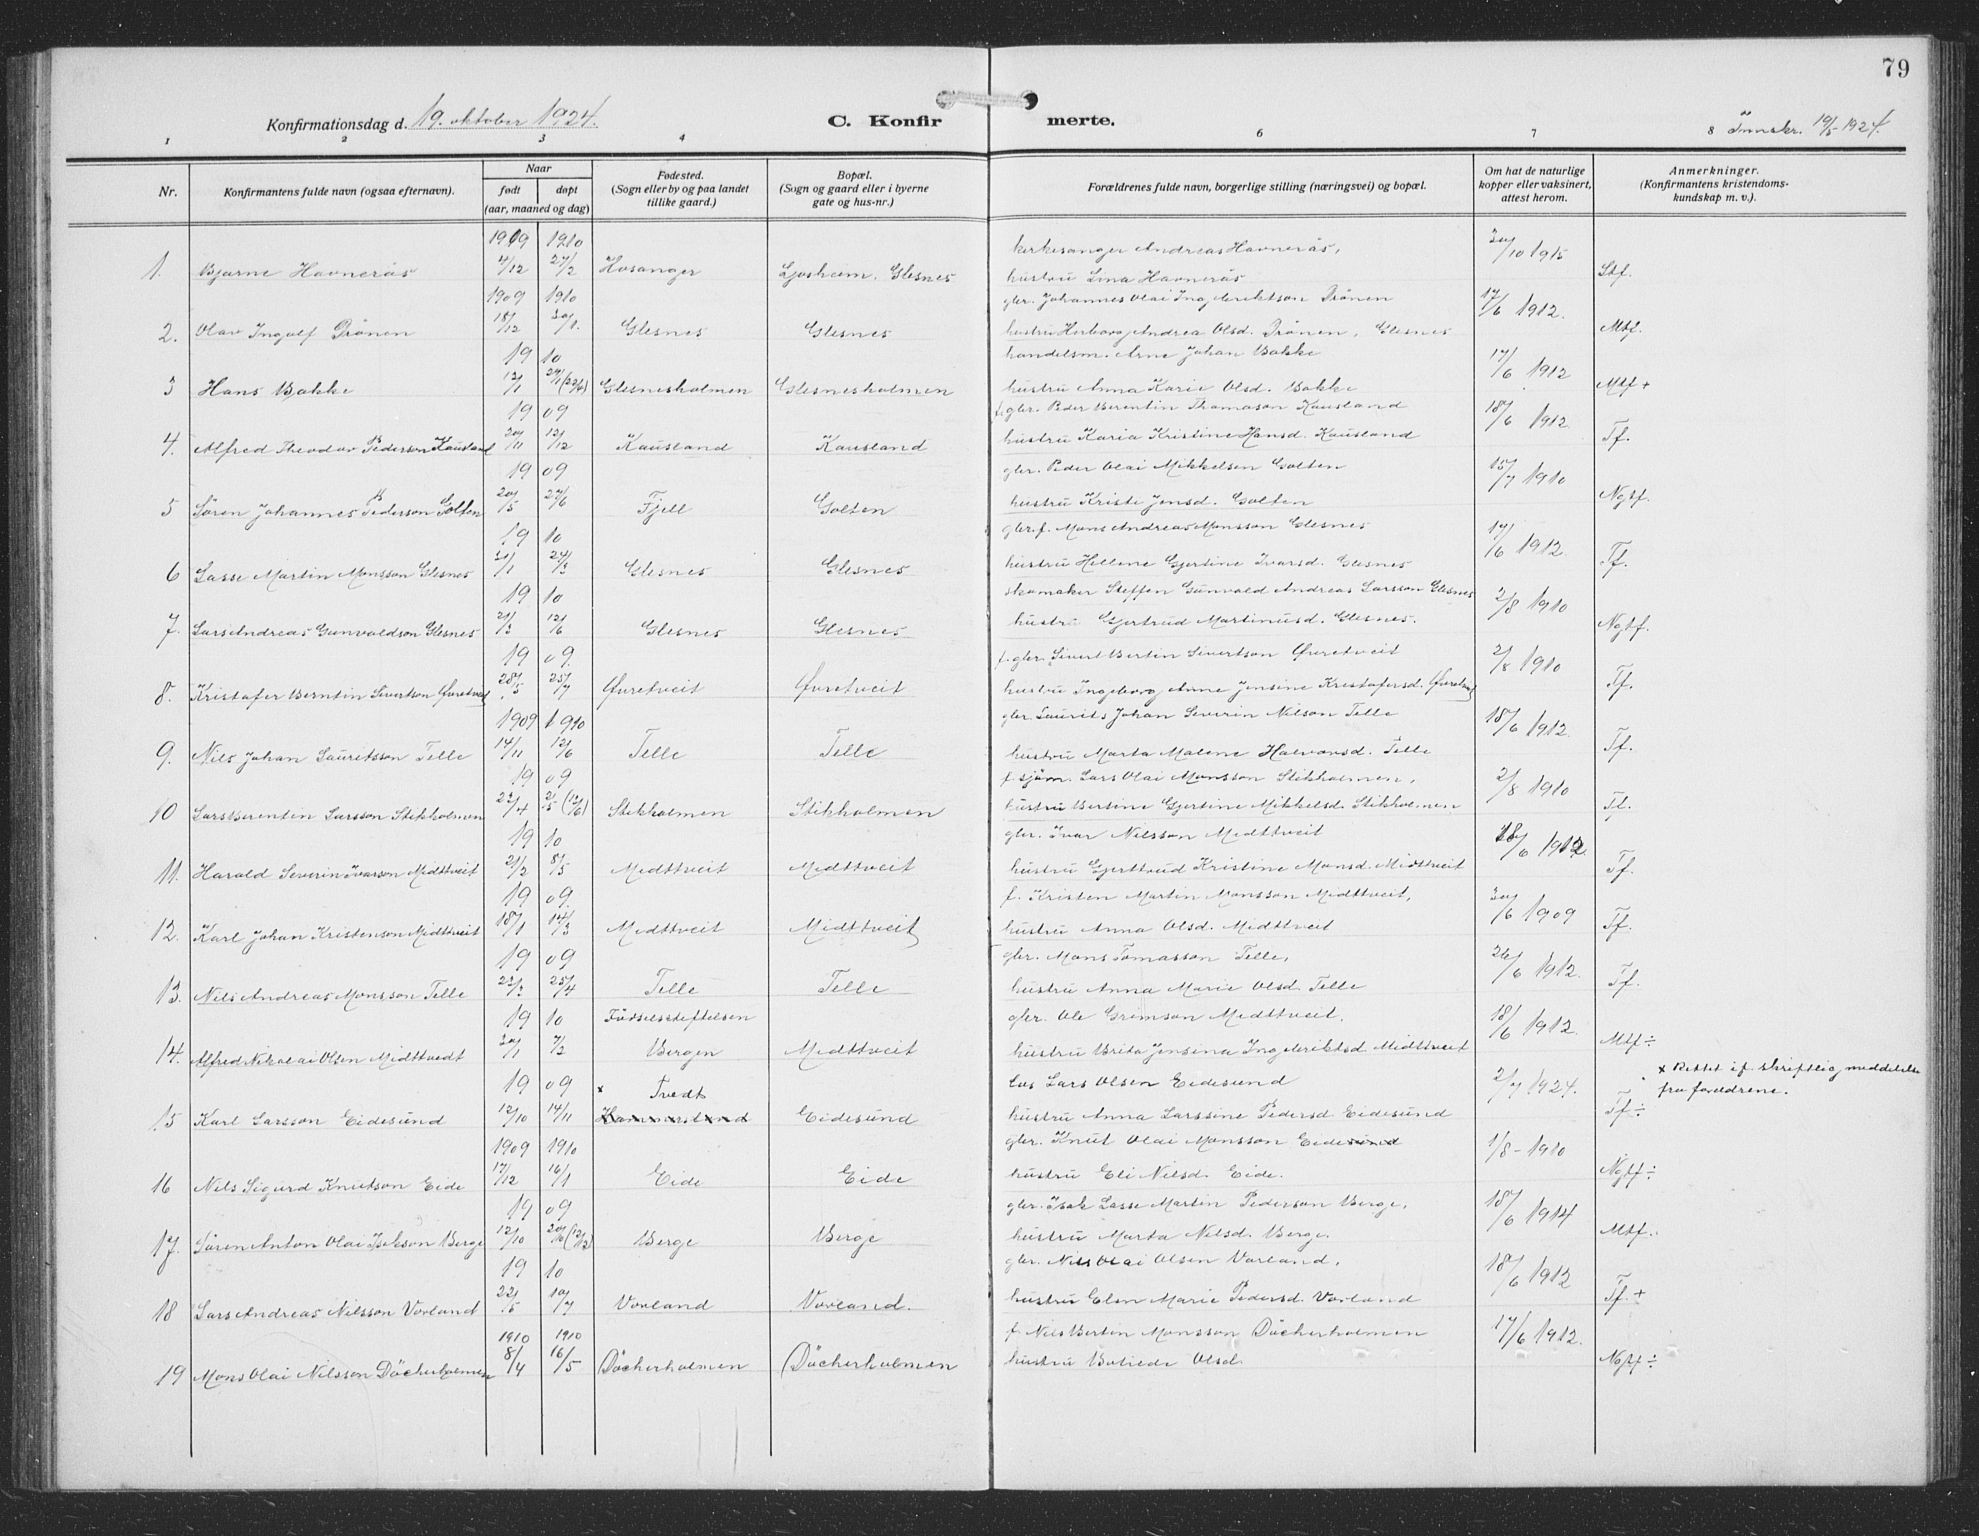 79
Konfirmationsdag d. 19. oktober 1924. C. Konfirmerte. Innskr. 19/5-1924.
1 2 3 4 6 7 8
Nr. Konfirmantens fulde navn (ogsaa efternavn). Naar født døpt (aar, maaned og dag) Fødested. (Sogn eller by og paa landet tillike gaard.) Bopæl. (Sogn og gaard eller i byerne gate og hus-nr.) Forældrenes fulde navn, borgerlige stilling (næringsvei) og bopæl. Om hat de naturlige kopper eller vaksinert, attest herom. Anmerkninger. (Konfirmantens kristendoms-kundskap m. v.).
1909 1910 kirkesanger Andreas Havnerås, 30/10 1915
1. Bjarne Havnerås 4/12 27/2 Hosanger Ljosheim. Glesnes hustru Lina Havnerås Stf.
1909 1910 gbr. Johannes Olai Ingebriktson Trönen 17/6 1912.
2. Olav Ingolf Trönen 18/12 30/1. Glesnes Glesnes hustru Herborg Andrea Olsd. Trönen, Glesnes Mtf.
19 10 handelsm. Arne Johan Bakke 17/6 1912
3 Hans Bakke 12/1 27/1 (22/6) Glesnesholmen Glesnesholmen hustru Anna Karie Olsd. Bakke Mtf +
19 09 f. gbr. Peder Berentin Thomason Kausland 18/6 1912
4. Alfred Theodor Pederson Kausland 30/11 12/12 Kausland Kausland hustru Karia Kristine Hansd. Kausland Tf.
19 09 gbr. Peder Olai Mikkelsen Golten 15/7 1910
5 Sören Johannes Pederson Golten 20/5 27/6 Fjell Golten hustru Kristi Jensd. Golten Ngtf.
19 10 gbr. f. Mons Andreas Monsson Glesnes 17/6 1912.
6 Lasse Martin Monsson Glesnes 31/1 24/3 Glesnes Glesnes hustru Hellene Gjertine Ivarsd. Glesnes Tf.
19 10 skomaker Steffen Gunvald Andreas Larsson Glesnes 2/8 1910
7. Lars Andreas Gunvaldson Glesnes 21/3 12/6 Glesnes Glesnes hustru Gjertrud Martinusd. Glesnes. Ngtf.
19 09. f. gbr. Sivert Bertin Sivertson Øvretveit 2/8 1910
8. Kristofer Berntin Sivertson Øvretveit 28/5 25/7 Øvretveit Øvretveit hustru Ingeborg Anne Jensine Kristofersd. Øvretveit Tf.
1909 1910 gbr. Laurits Johan Severin Nilson Telle 18/6 1912.
9. Nils Johan Lauritsson Telle 14/11 12/6 Telle Telle hustru Marta Malene Halvorsd. Telle Tf.
19 09 f. sjöm. Lars Olai Monsson Stikholmen, 2/8 1910
10 Lars Berenten Larsson Stikholmen 23/4 2/5 (12/6) Stikholmen Stikholmen hustru Bertine Gjertine Mikkelsd. Stikholmen Tf.
19 10 gbr. Ivar Nilsson Midttveit 18/6 1912.
11. Harald Severin Ivarson Midttveit 21/2 8/5 Midttveit Midttveit hustru Gjerttrud Kristine Monsd. Midttveit Tf.
19 09. f. Kristen Martin Monsson Midttveit, 30/6 1909
12. Karl Johan Kristenson Midttveit 18/1 14/3 Midttveit Midttveit hustru Anna Olsd. Midttveit Tf.
19 09 gbr. Mons Tomasson Telle, 26/6 1912.
13. Nils Andreas Monsson Telle 23/3 25/4 Telle Telle hustru Anna Marie Olsd. Telle Tf.
19 10 Födselsstiftelsen gbr. Ole Grimson Midttveit, 18/6 1912.
14. Alfred Nikolai Olsen Midttvedt 30/1 7/2 Bergen Midttveit hustru Brita Jensina Ingebriktsd. Midttveit Mtf ÷
19 09 x Tvedt los Lars Olsen Eidesund 2/7 1924. x Rettet if. skriftlig meddelelse fra foreldrene.
15 Karl Larsson Eidesund 12/10 14/11 Hammersland Eidesund hustru Anna Larssine Pedersd. Eidesund Tf ÷
1909 1910 gbr. Knut Olai Monsson Eidesund 1/8 - 1910
16 Nils Sigurd Knutson Eide 17/12 16/1 Eide Eide hustru Eli Nilsd. Eide. Ngtf ÷
19 09 gbr. Isak Lasse Martin Pederson Berge, 18/6 1914
17. Sören Anton Olai Isakson Berge 12/10 20/10 (12/12) Berge Berge hustru Marta Nilsd. Berge. Mtf.
19 10 gbr. Nils Olai Olsen Vorland, 18/6 1912
18 Lars Andreas Nilsson Vorland 22/5 10/7 Vorland Vorland. hustru Elen Marie Pedersd. Vorland Tf. +
1910 1910 f. Nils Bertin Monsson Döcherholmen 17/6 1912.
19 Mons Olai Nilsson Döcherholmen 8/4 16/5 Döcherholmen Döcherholmen hustru Boliede Olsd. Ngtf ÷